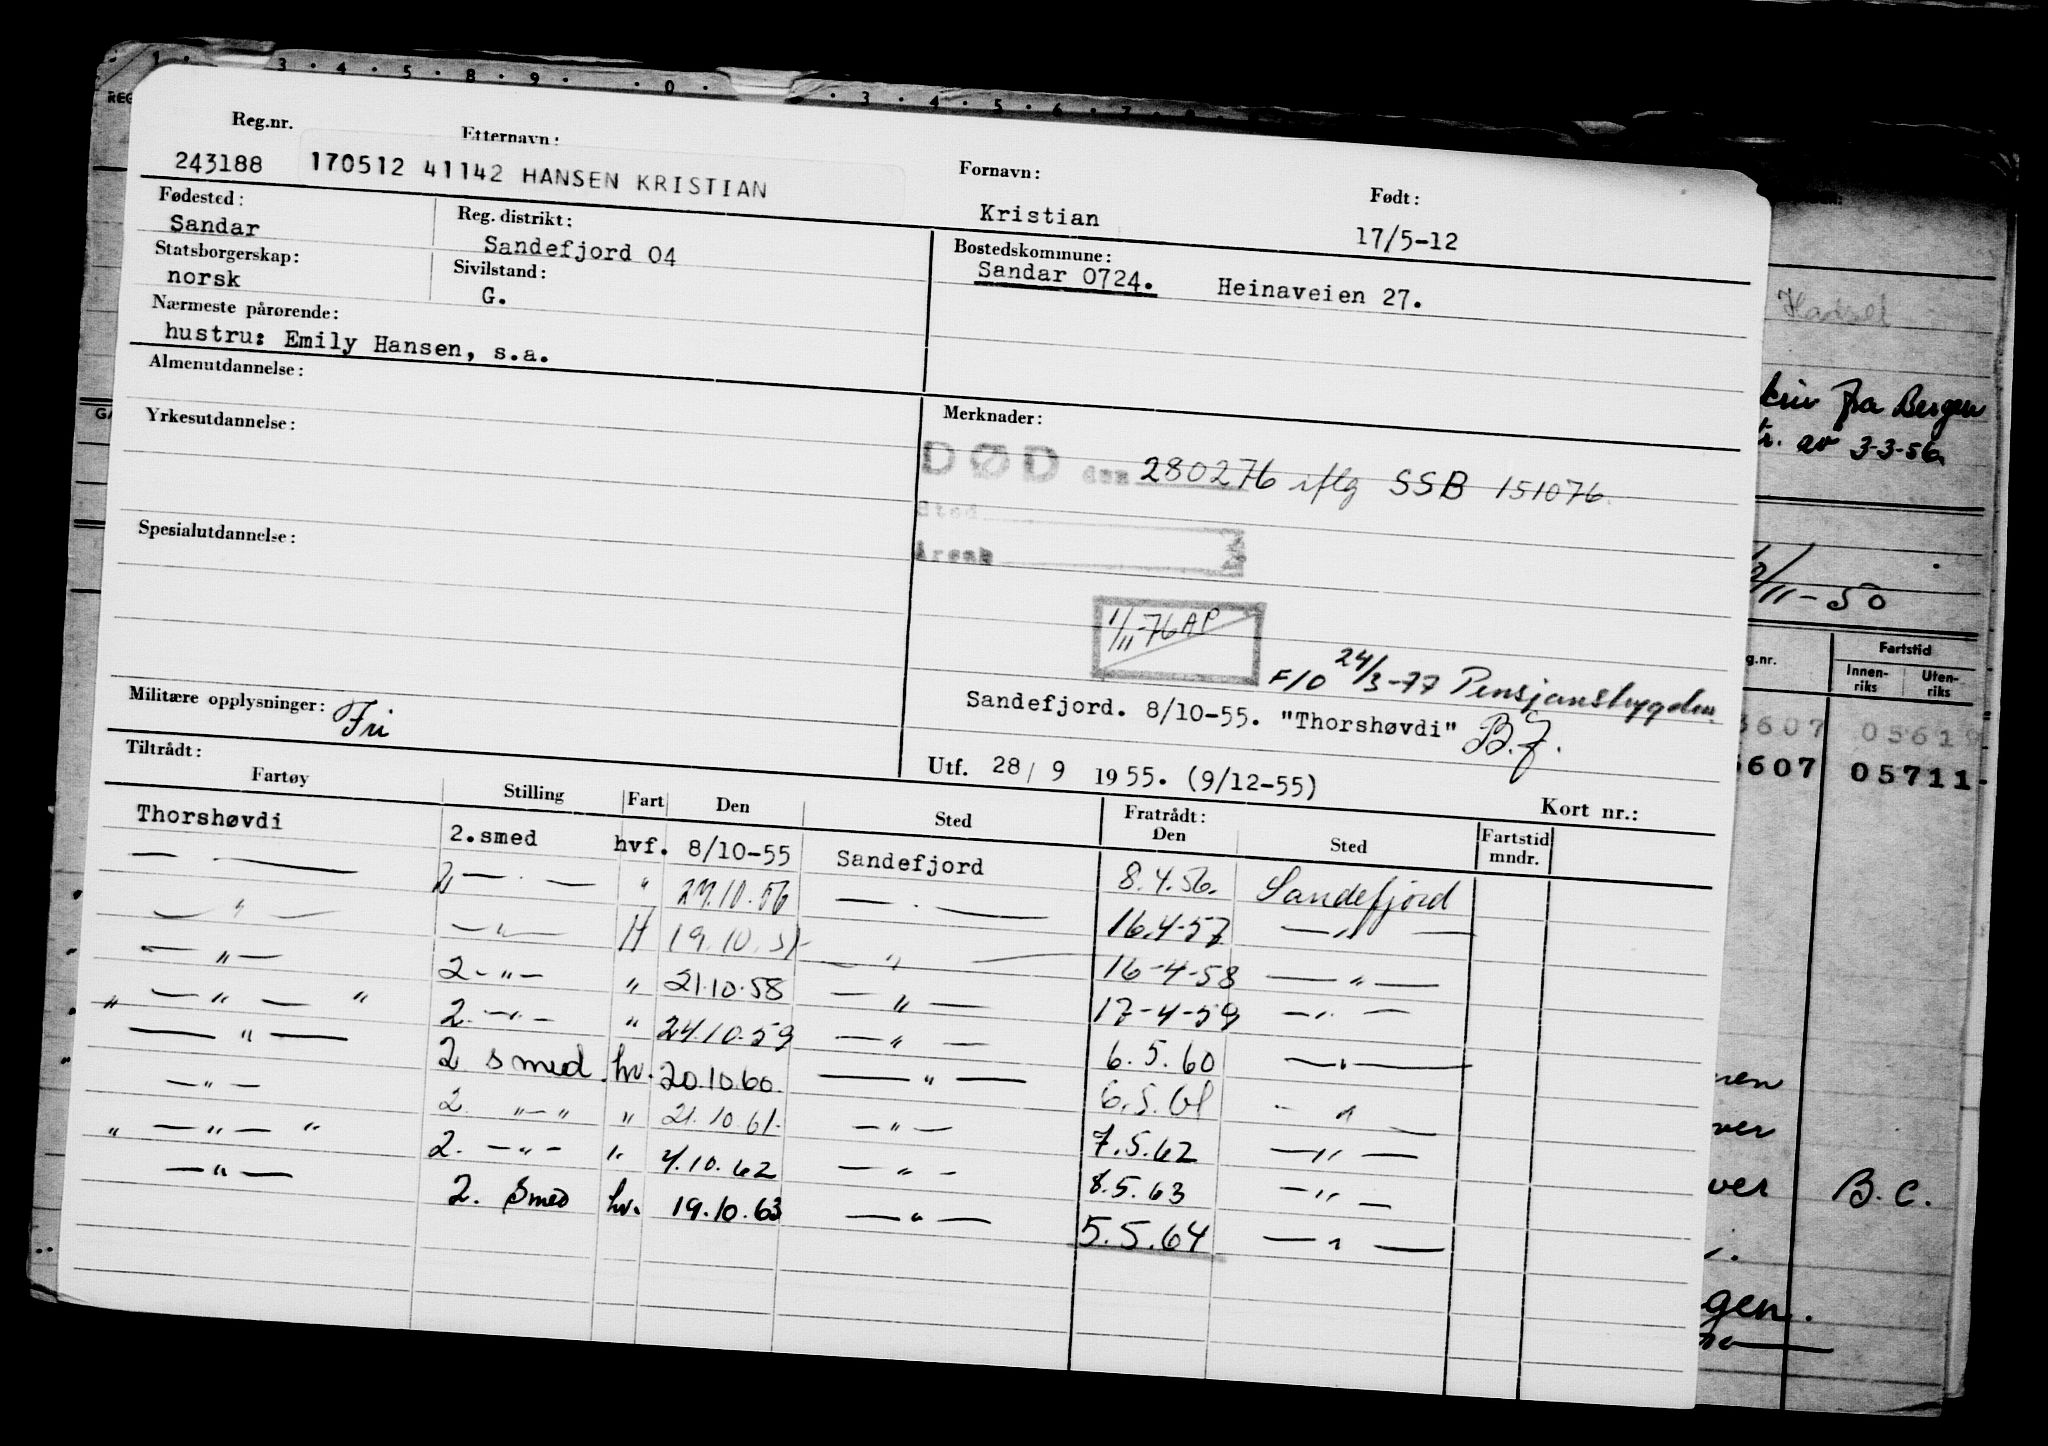 Reg.nr. Etternavn: Fornavn: Født:
243188 170512 41142 HANSEN KRISTIAN Kristian 17/5-12
Fødested: Reg. distrikt: Bostedskommune:
Sandar Sandefjord 04 Sandar 0724. Heinaveien 27.
Statsborgerskap: Sivilstand:
norsk G.
Nærmeste pårørende:
hustru: Emily Hansen, s.a.
Almenutdannelse:
Yrkesutdannelse:
Spesialutdannelse:
Militære opplysninger: Fri
Merknader:
DØD den 280276 iflg SSB 151076.
Sted
Årsak
1/11-76 AP
F/O 24/3-77 Pensjonstrygden
Sandefjord. 8/10-55. "Thorshøvdi" B.J.
Utf. 28/9 1955. (9/12-55)
Kort nr.:
Tiltrådt: Fratrådt:
Fartøy Stilling Fart Den Sted Den Sted Fartstid mndr.
Thorshøvdi 2.smed hvf. 8/10-55 Sandefjord 8.4.56. Sandefjord
— . — 2 — . — " 27.10.56 — . — 16.4-57 — " —
— " — — " — H 19.10.57 — " — 16-4-58 — " —
— " — 2 - " - " 21.10.58 — " — 17-4-59 — " —
" — " — " 2. - " - " 24.10.59 — " — 6.5.60 — " —
— " — 2 smed. hv. 20.10.60. — " — 6.5.61 — " —
— " — 2. " — " " 21.10.61. — " — 7.5.62 — " —
" — " — " 2. — " — " 4.10.62 — " — 8.5.63 — " —
— " — 2. Smed hv. 19.10.63 — " — 5.5.64 — " —
Hadsel
fra Bergen
av 3-3-56
11-50
g.nr. Fartstid
Innen-riks Uten-riks
3607 05619
6607 05711-
ver
ver B.C.
gen.